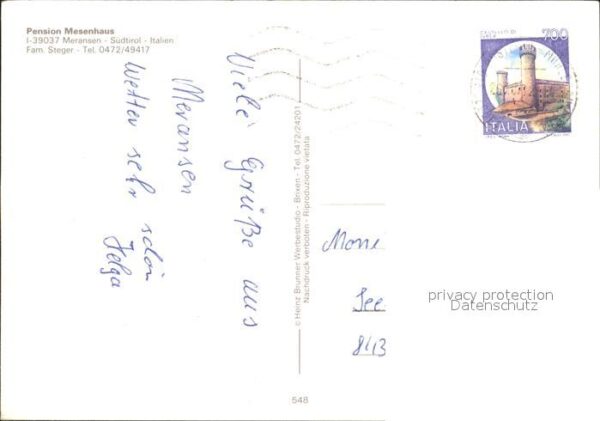 Pension Mesenhaus
I-39037 Meransen - Südtirol - Italien
Fam. Steger - Tel. 0472/49417
Viele Grüße aus
Meransen
Wetter sehr schön
Helga
© Heinz Brunner Werbestudio - Brixen - Tel. 0472/24201
Nachdruck verboten - Riproduzione vietata
548
700
ITALIA
See
privacy protection
Datenschutz